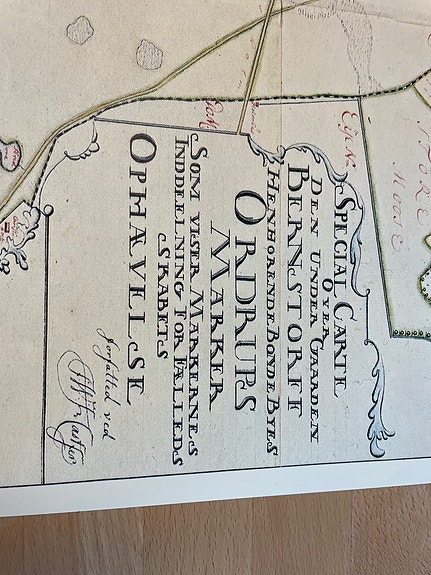 SPECIAL CARTE
OVER
DEN UNDER GAARDEN
BERNSTORFF
HENHÖRENDE BONDE BYES
ORDRUPS
MARKER
SOM VISER MARKERNES
INDDEELNING FOR FÆLLEDS
SKABETS
OPHÆVELSE
forfatted ved
Eÿen
STORE
MOSE